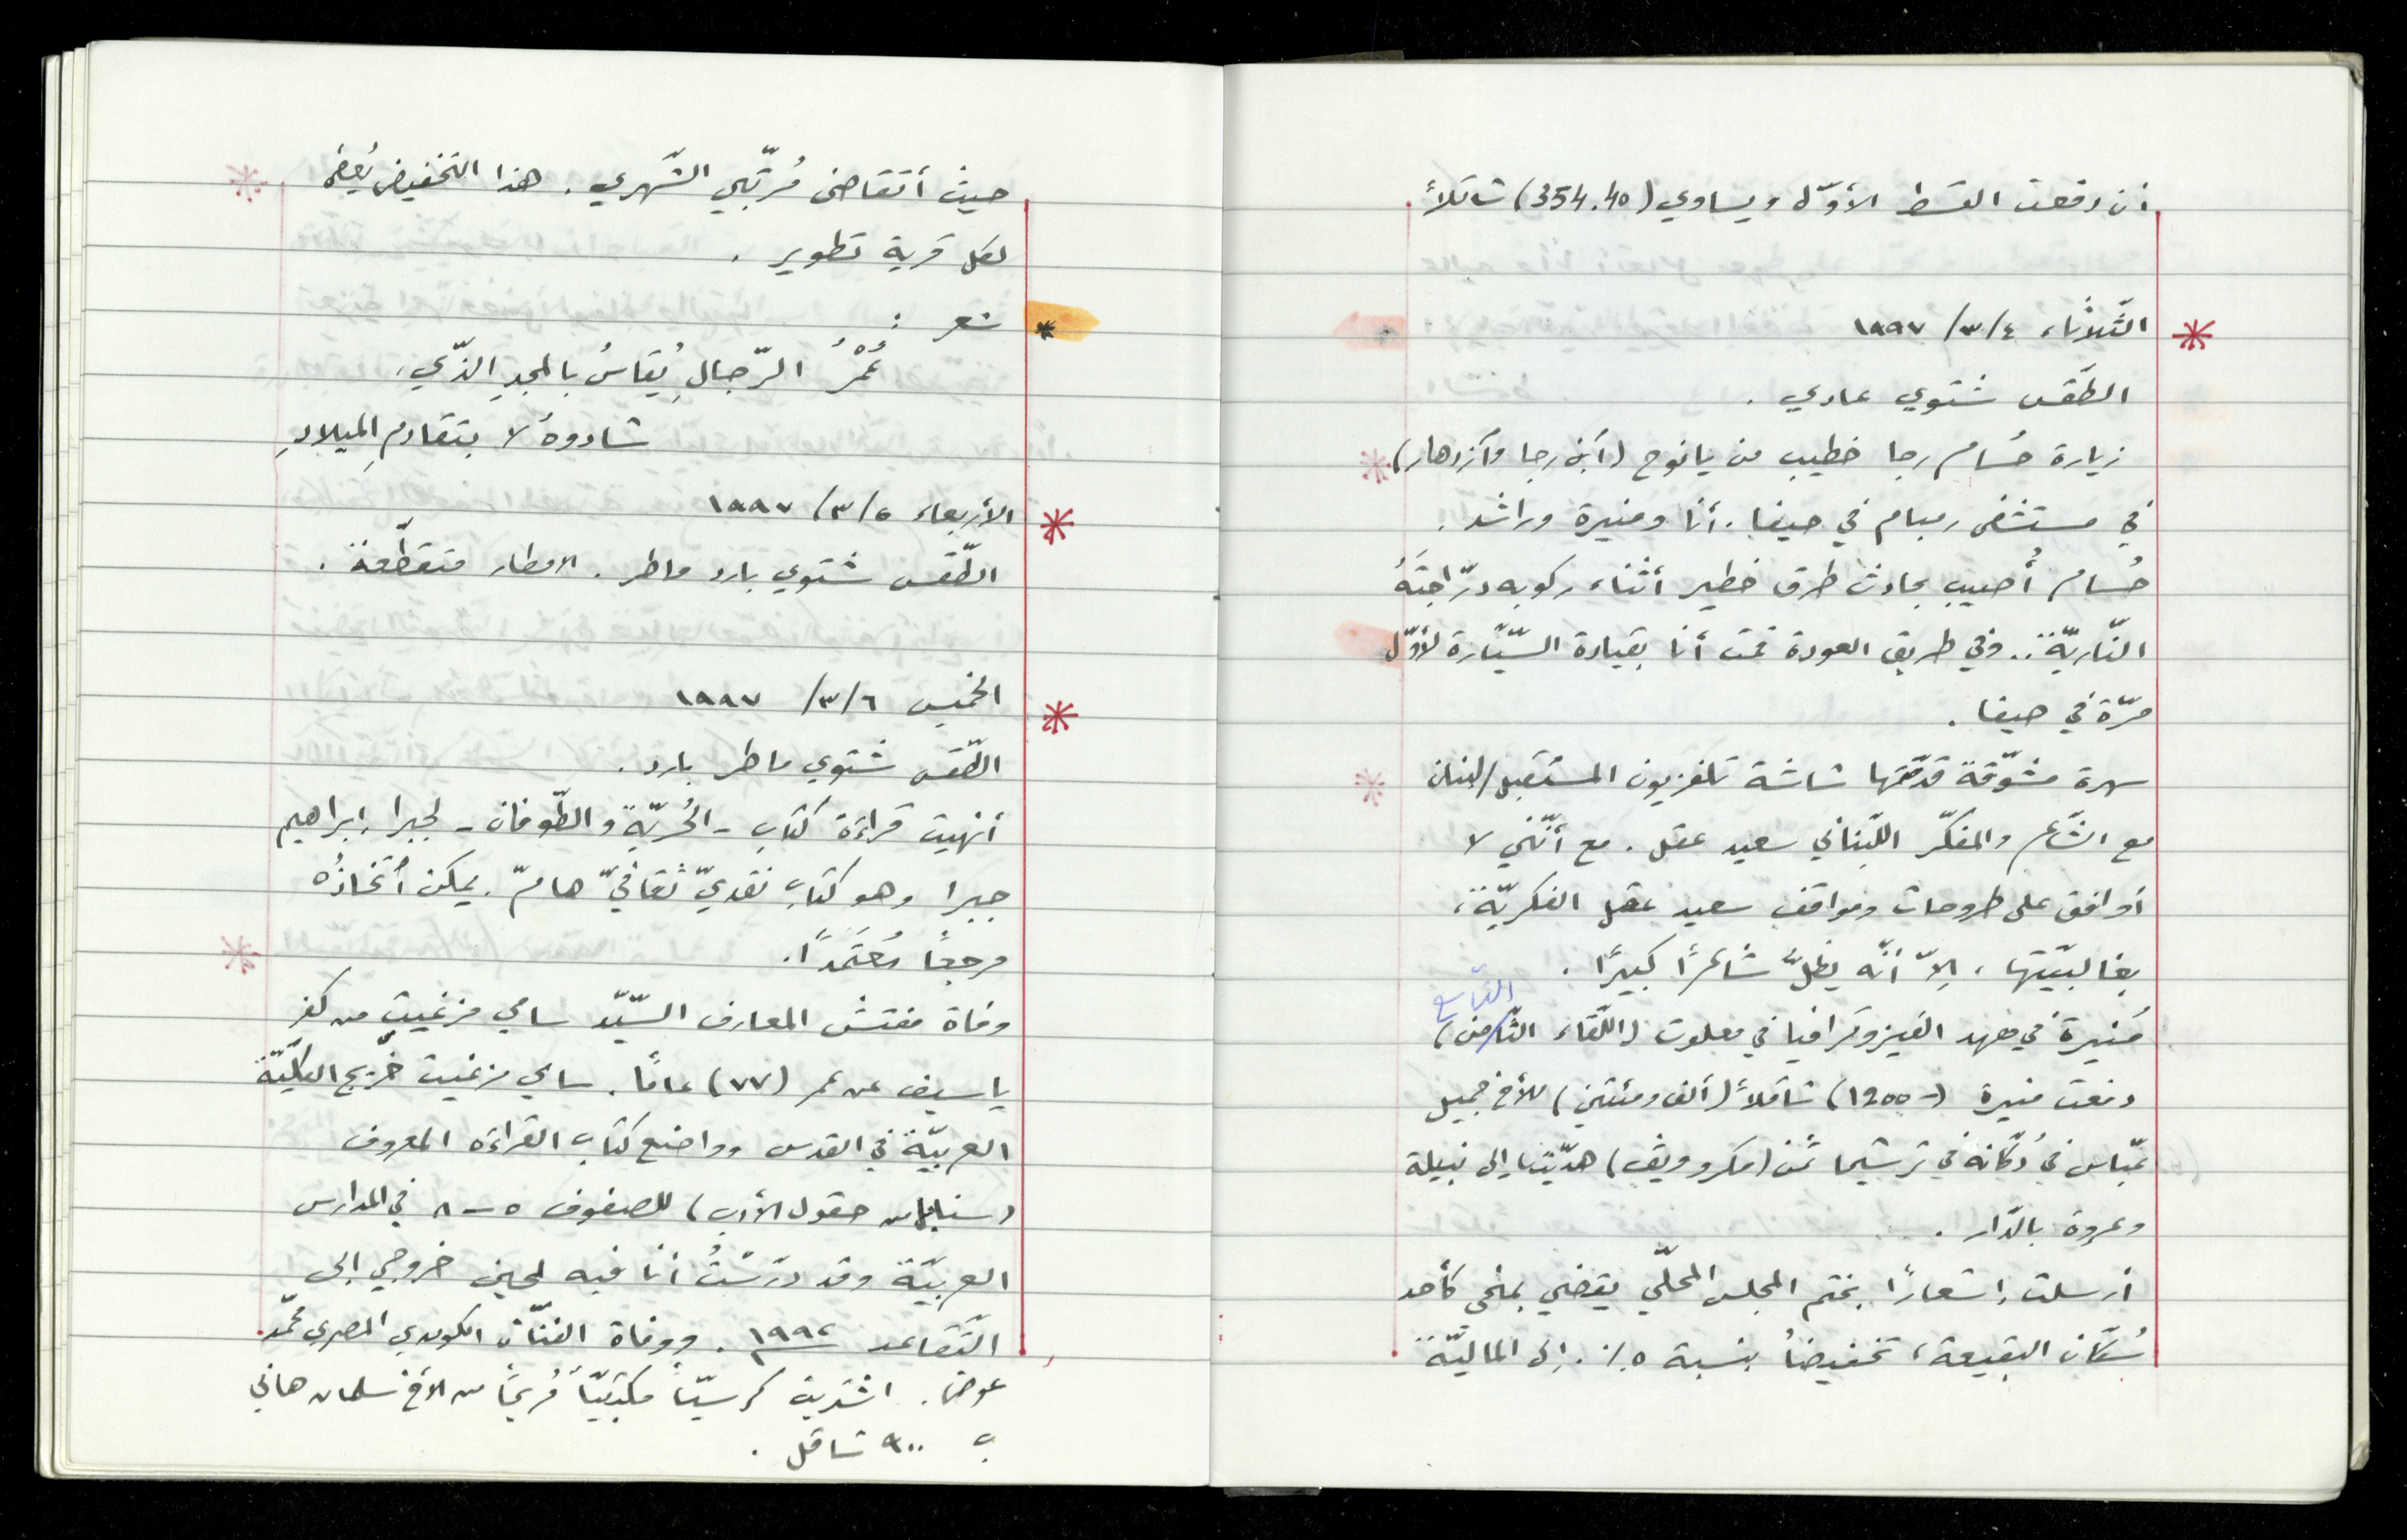 أن دفعت القسط الأوّل ويساوي (354.40) شاقلاً.
الثّلاثاء ٤/٣/ ١٩٩٧
الطّقس شتوي عادي.
زيارة حُسام رجا خطيب من يانوح (ابن رجا وازدهار)
في مستشفى رمبام في حيفا. أنا ومنيرة وراشد.
حُسام أُصيب بحادث طرق خطير أثناء ركوبه درّاجتَهُ
النّاريّة.. وفي طريق العودة قمت أنا بقيادة السّيّارة لأوّل
مرّة في حيفا.
سهرة مشوّقة قدّمتها شاشة تلفزيون المستقبل/لبنان
مع الشّاعر والمفكّر اللّبناني سعيد عقل. مع أنّني لا
أوافق على طروحات ومواقف سعيد عقل الفكريّة،
بغالبيّتها، إلاّ أنّه يظلّ شاعرًا كبيرًا.
التّاسع
مُنيرة في معهد الفيزوترافيا في معلوت (اللّقاء الثّامن)
دفعت منيرة (-1200) شاقلاً (ألف ومئتين) للأخ جميل
نمّاس في دُكّانه في ترشيحا ثمن (مكروويڤ) هديّتنا إلى نبيلة
وعروة بالدّار.
أرسلت إشعارًا بختم المجلس المحلّي يقضي بمنحي كأحد
سُكّان البقيعة، تخفيضاً بنسبة ٥٪. إلى الماليّة
حيث أتقاضى مُرتّبي الشّهري. هذا التخفيض يُعطى
لكل قرية تطوير.
شعر:
عُمْرُ الرّجالِ يُقاسُ بالمجدِ الذّي،
شادوهُ لا بتقادمِ الميلادِ
الأربعاء ٥/٣/ ١٩٩٧
الطّقس شتوي بارد ماطر. الامطار متقطّعة.
الخميس ٦/٣/ ١٩٩٧
الطّقس شتوي ماطر بارد.
أنهيت قراءة كتاب - الحُريّة والطّوفان - لجبرا إبراهيم
جبرا وهو كتاب نقديّ ثقافيّ هامّ. يمكن اتّخاذُه
مرجعاً مُعتَمَدًا.
وفاة مفتش المعارف السّيّد سامي مزغيت من كفر
ياسيف عن عمر (٧٧) عامًا. سامي مزغيت خرّيج الكلّيّة
العربيّة في القدس وواضع كتاب القراءة المعروف
(سنابل من حقول الأدب) للصفوف ٥-٨ في المدارس
العربيّة وقد درّسْتُ أنا فيه لحين خروجي إلى
التّقاعد ١٩٩٢. ووفاة الفنّان الكوميدي المصري محمّد
عوض. اشتريت كرسيّاً مكتبيّاً مُريحًا من الأخ سلمان هاني
ب ٩٠٠ شاقل.